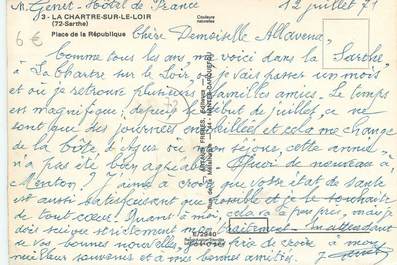 M. Genet - Hôtel de France 12 juillet 71
3 - LA CHARTRE-SUR-LE-LOIR
(72-Sarthe)
Place de la République
Couleurs naturelles
6 €
Chère Demoiselle Allavena
Comme tous les ans, me voici dans la "Sarthe"
à "La Chartre sur le Loir", je vais passer un mois
et où je retrouve plusieurs familles amies. Le temps
est magnifique; depuis le début de juillet, ce ne
sont que des journées ensoleillées et cela me change
de la où son séjour, cette année
n'a pas été bien agréable. Quoi de nouveau à
Menton? J'aime à croire que votre état de santé
est aussi satisfaisant que possible et je le souhaite
de tout cœur. Quant à moi, cela va à peu près, mais je
dois suivre strictement mon traitement. En attendant
de vos bonnes nouvelles, prie de croire à mon
meilleur souvenir et à mes bonnes amitiés. Genet